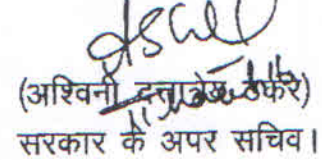 (अश्विनी दत्तात्रेय ठाकरे)
सरकार के अपर सचिव।